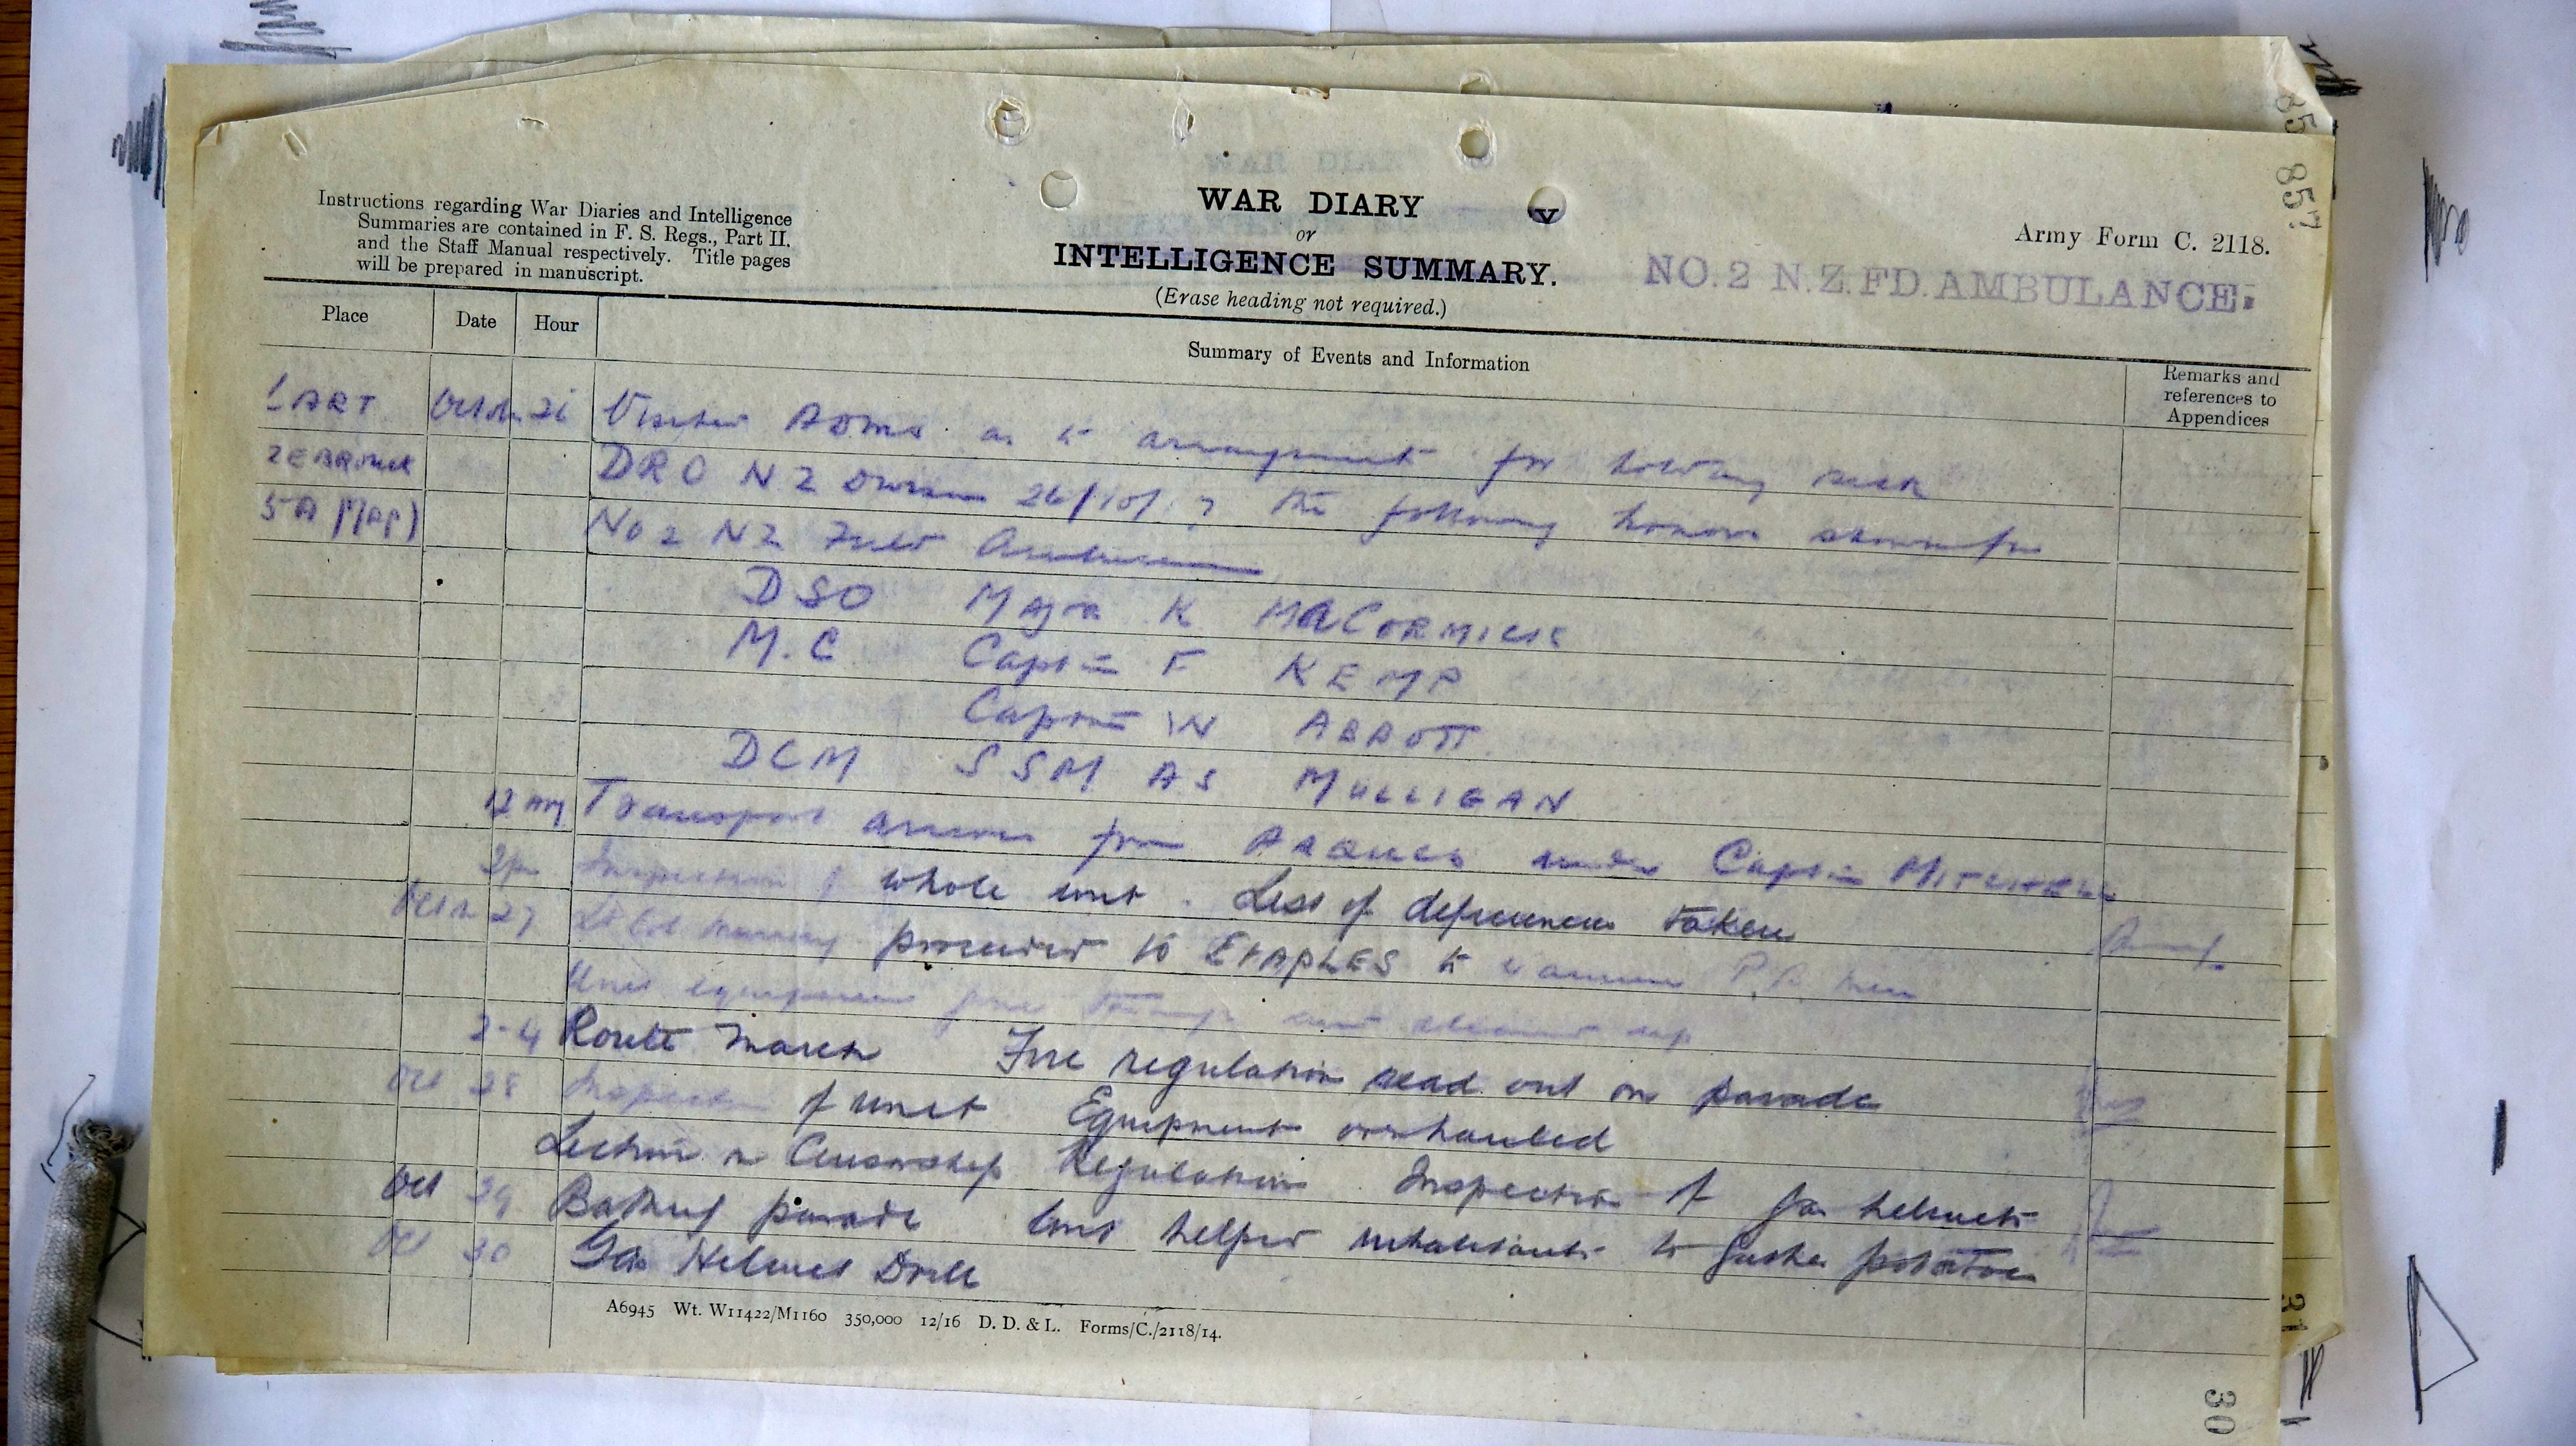 85
857
Instructions regarding War Diaries and Intelligence
Summaries are contained in F. S. Regs., Part II.
and the Staff Manual respectively. Title pages
will be prepared in manuscript.
WAR DIARY
or
INTELLIGENCE SUMMARY.
(Erase heading not required.)
Army Form C. 2118.
NO. 2 N.Z. FD. AMBULANCE.
Place Date Hour Summary of Events and Information Remarks and references to Appendices
26 Visited ADMS as to arrangement for holding sick
DRO NZ Division 26/10/17 the following honors
5A (Map) No 2 NZ Field Ambulance
DSO Major K MacCORMICK
M.C Captain F KEMP
Captain W ABBOTT
DCM SSM AS MULLIGAN
12 Transport arrives from under Captain MITCHELL
2pm Inspection of whole unit. List of deficiencies taken
27 Lt Col proceeded to ETAPLES to examine P.B. men
Unit equipment gone through and cleaned up
2-4 Route march Fire regulation read out on parade
Oct 28 Inspection of unit Equipment overhauled
Lecture on Censorship Regulations Inspection of gas helmets
Oct 29 Bathing parade Unit helped inhabitants to gather potatoes
Oct 30 Gas Helmet Drill
A6945 Wt. W11422/M1160 350,000 12/16 D. D. & L. Forms/C./2118/14.
31
30